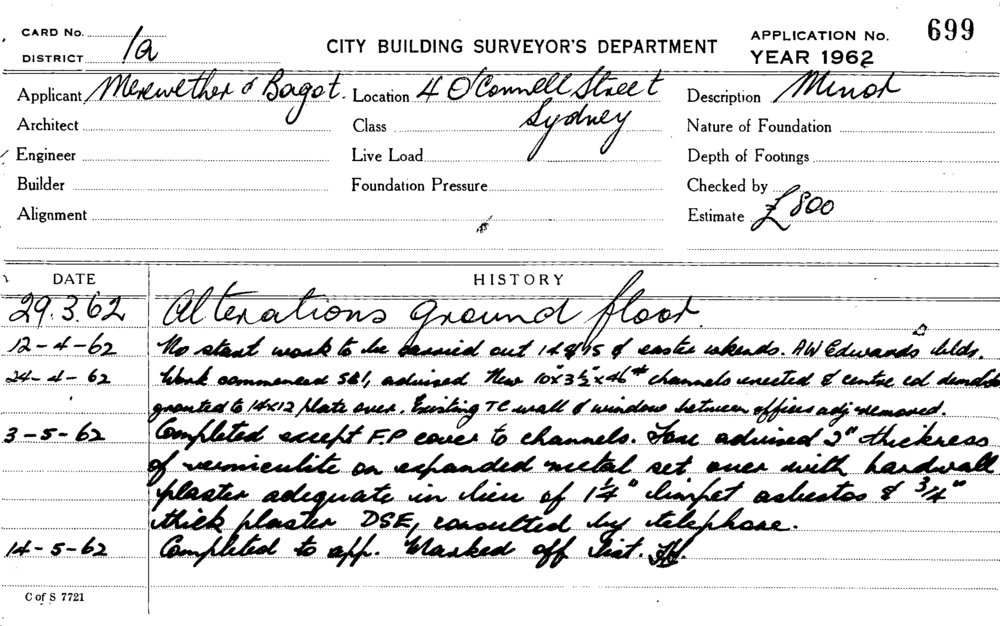 CARD No.
DISTRICT 1a
CITY BUILDING SURVEYOR'S DEPARTMENT
APPLICATION No. 699
YEAR 1962
Applicant Merewether & Bagot. Location 4 O'Connell Street Description Minor
Architect Class Sydney Nature of Foundation
Engineer Live Load Depth of Footings
Builder Foundation Pressure Checked by
Alignment Estimate £800
DATE HISTORY
29.3.62 Alterations ground floor.
12-4-62 No start work to be carried out 14 & 15 of easter wkends. AW Edwards blds.
24-4-62 Work commenced S&I, advised New 10"x3½"x46# channels erected & centre col
grouted to 14x12 plate over. Existing TC wall & windows between offices adj removed.
3-5-62 Completed except F.P cover to channels. advised 2" thickness
of vermiculite on expanded metal set over with hardwall
plaster adequate in lieu of 1¼" limpet asbestos & ¾"
thick plaster DSE, consulted by telephone.
14-5-62 Completed to app. Marked off list.
C of S 7721